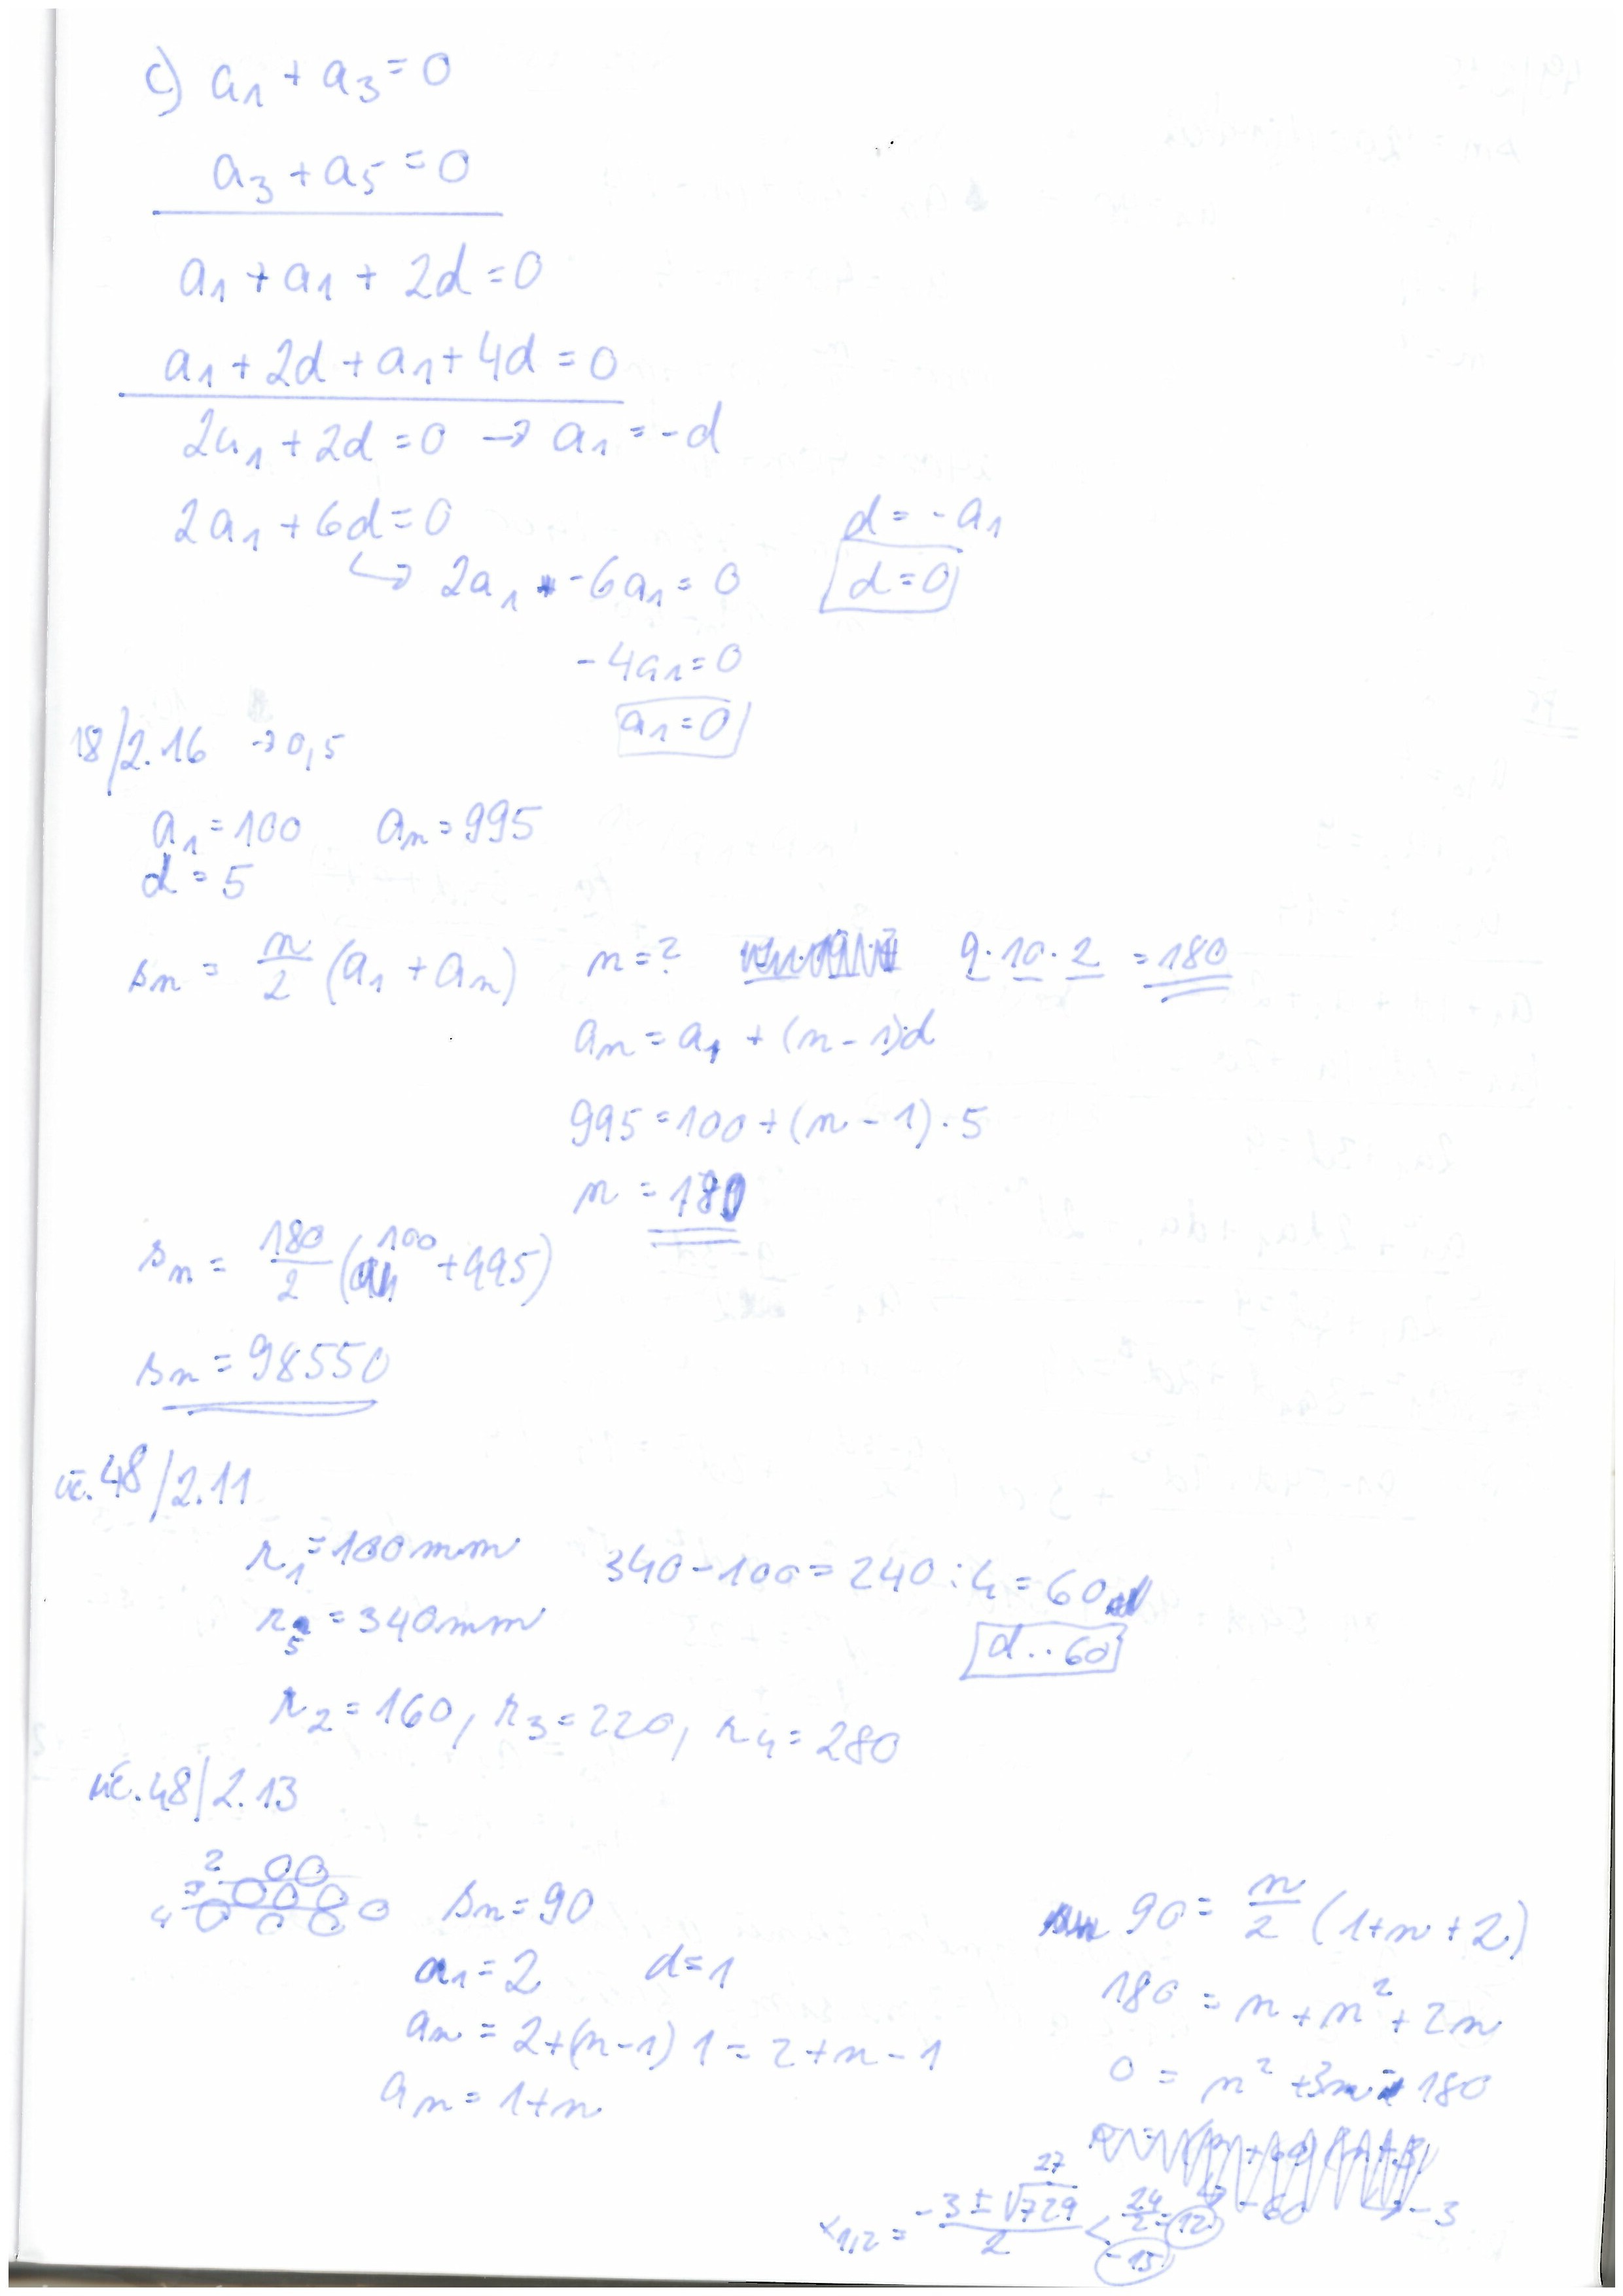 c) a₁ + a₃ = 0
a₃ + a₅ = 0
a₁ + a₁ + 2d = 0
a₁ + 2d + a₁ + 4d = 0
2a₁ + 2d = 0 → a₁ = -d
2a₁ + 6d = 0
d = -a₁
↳ 2a₁ - 6a₁ = 0
d = 0
-4a₁ = 0
a₁ = 0
18/2.16 → 0,5
a₁ = 100 aₙ = 995
d = 5
sₙ = n/2 (a₁ + aₙ) n = ? 9·10·2 = 180
aₙ = a₁ + (n - 1)d
995 = 100 + (n - 1)·5
n = 180
sₙ = 180/2 (100 + 995)
sₙ = 98550
uč. 48/2.11
r₁ = 100mm 340 - 100 = 240 : 4 = 60
r₅ = 340mm
d .. 60
r₂ = 160, r₃ = 220, r₄ = 280
uč. 48/2.13
2 OO
3 OOO
4 OOOO
sₙ = 90
a₁ = 2 d = 1
aₙ = 2 + (n - 1) 1 = 2 + n - 1
aₙ = 1 + n
90 = n/2 (1 + n + 2)
180 = n + n² + 2n
0 = n² + 3n - 180
27
x₁,₂ = (-3 ± √729)/2 < 24/2 = 12
-15
-60 → -3